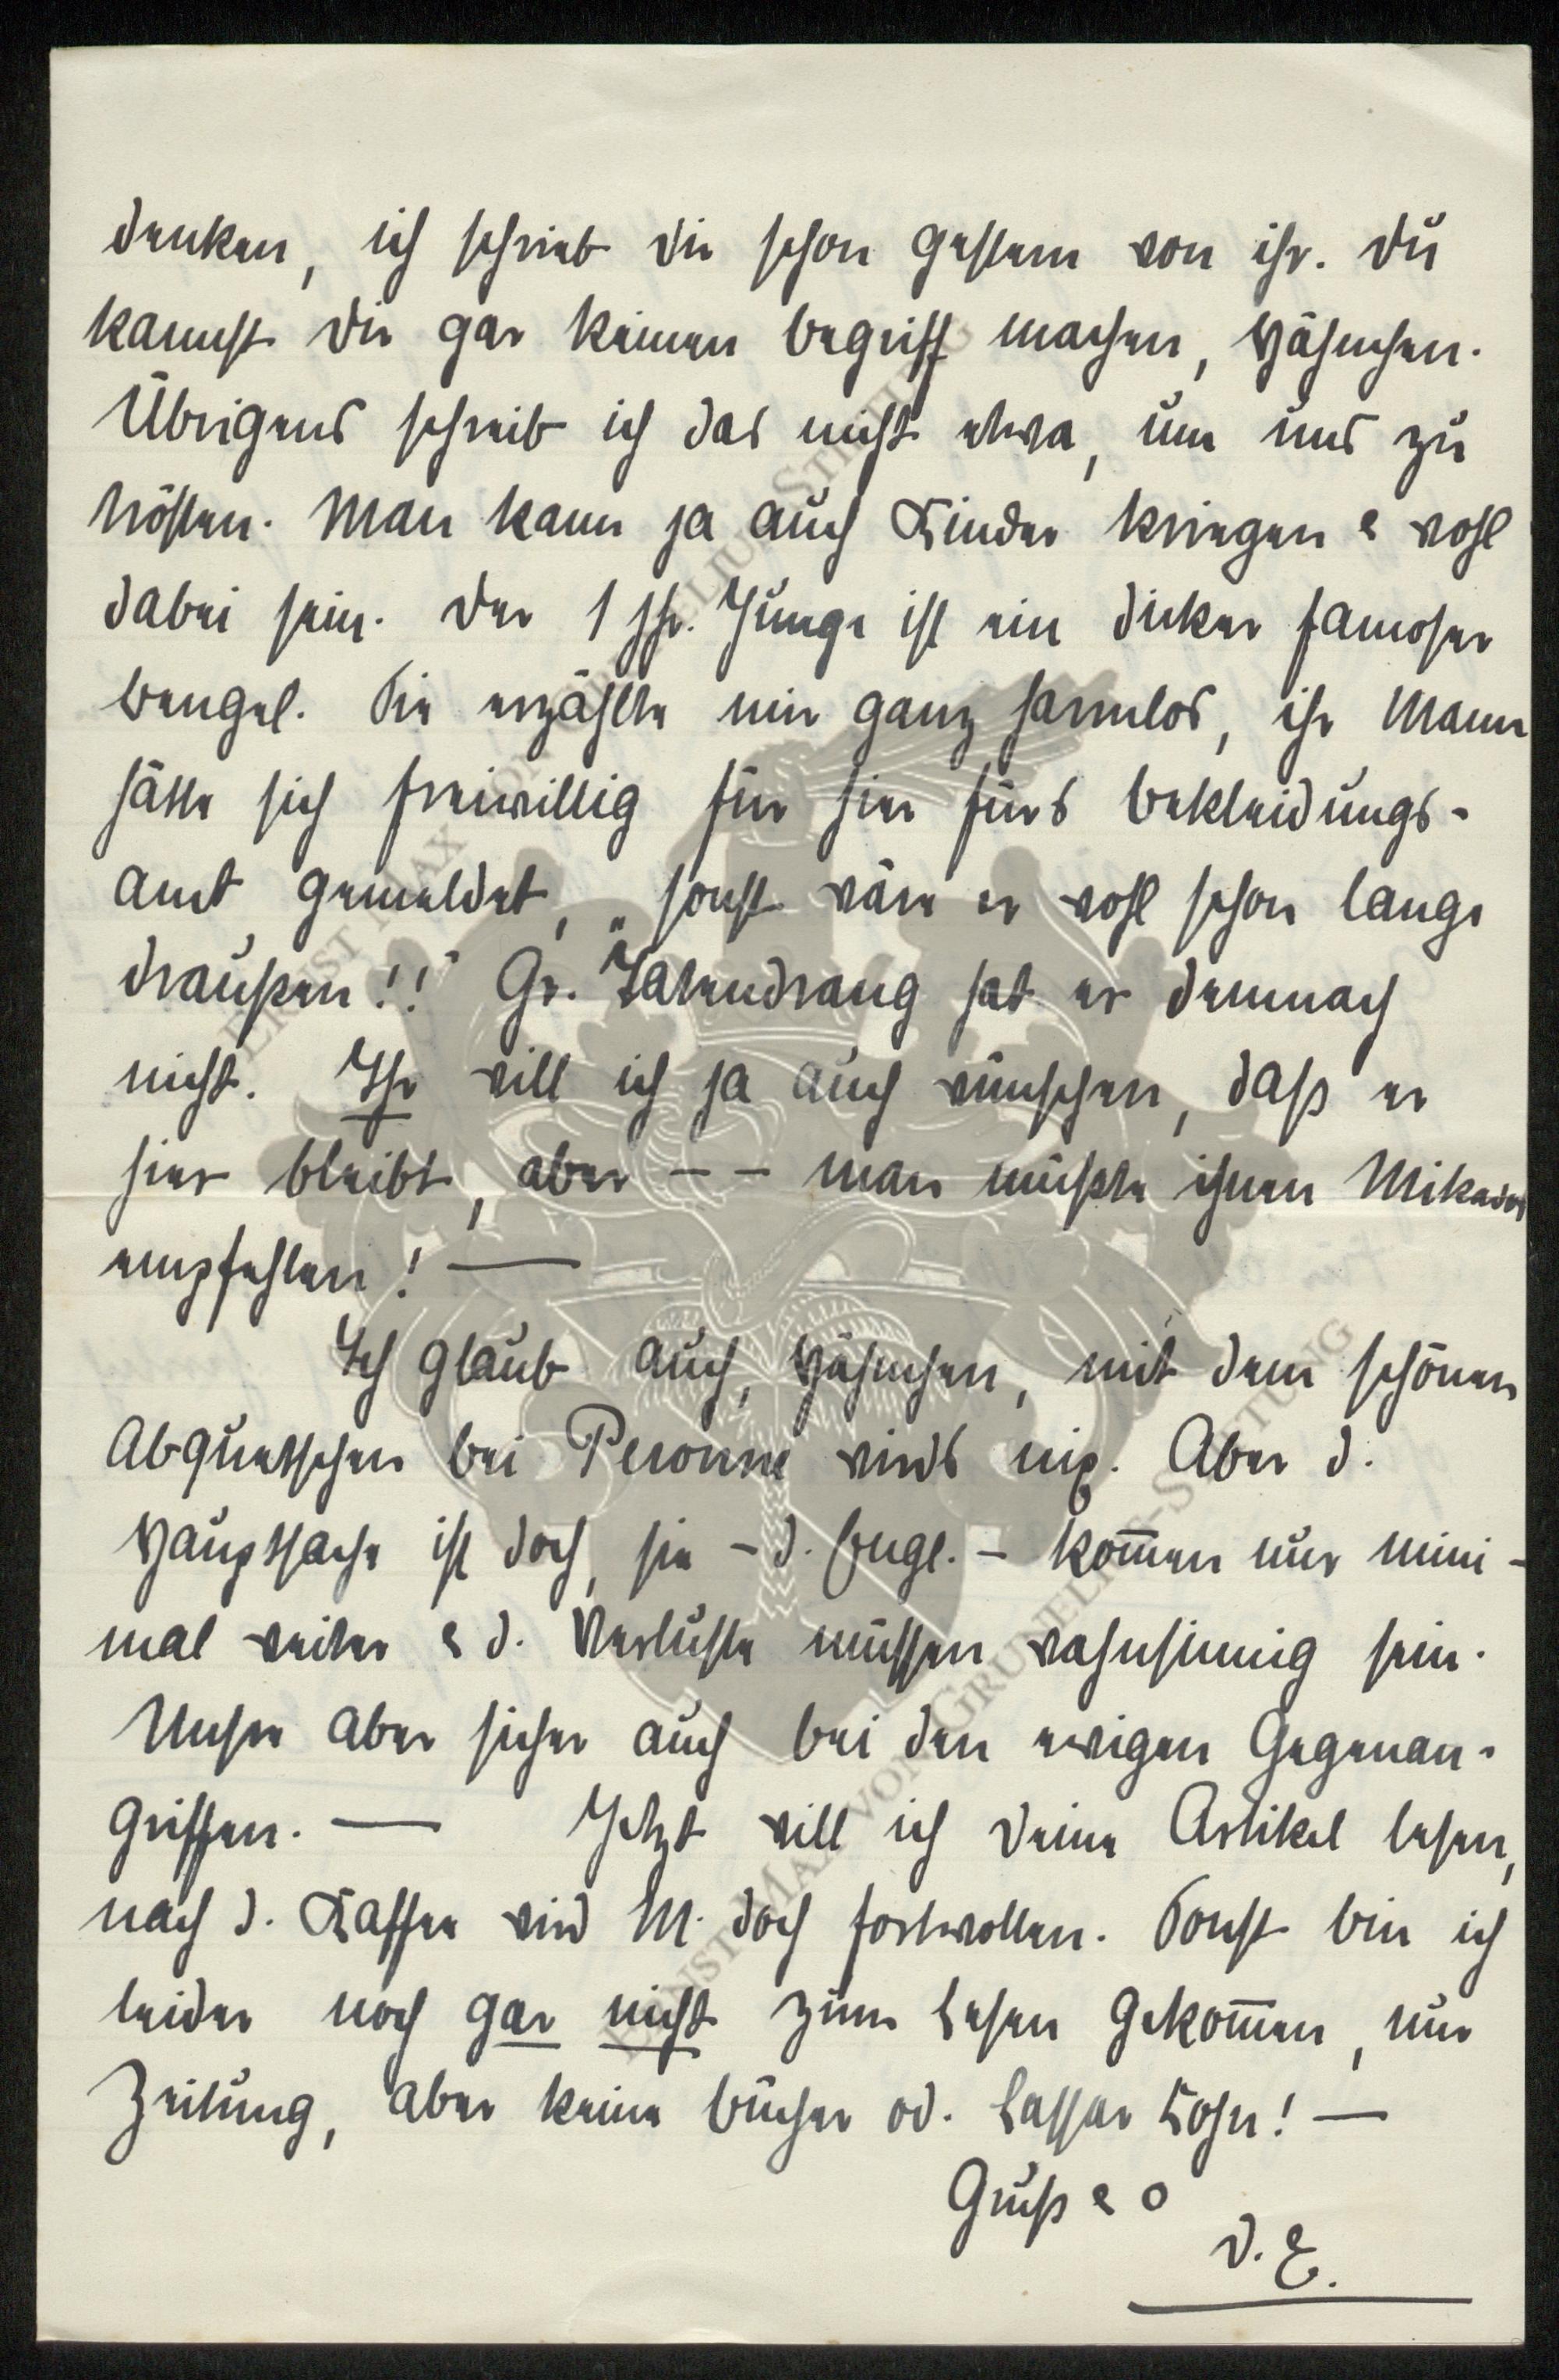 denken, ich schrieb Dir schon gestern von ihr. Du
kannst Dir gar keinen Begriff machen, Häschen.
Übrigens schreib ich das nicht etwa, um uns zu
trösten. Man kann ja auch Kinder kriegen & wohl
dabei sein. Der 1 jhr. Junge ist ein dicker famoser
Bengel. Sie erzählte mir ganz harmlos, ihr Mann
hätte sich freiwillig für hier fürs Bekleidungs-
amt gemeldet, „sonst wäre er wohl schon lange
draußen!!“ Gr. Tatendrang hat er demnach
nicht. Ihr will ich ja auch wünschen, daß er
hier bleibt, aber – – man müßte ihnen Mikados
empfehlen! —
Ich glaub auch, Häschen, mit dem schönen
Abquetschen bei Peronne wirds nix. Aber d.
Hauptsache ist doch, sie – d. Engl. – kom̅en nur mini-
mal weiter & d. Verluste müssen wahnsinnig sein.
Unsre aber sicher auch bei den ewigen Gegenan-
griffen. — Jetzt will ich Deine Artikel lesen,
nach d. Kaffee wird M. doch fortwollen. Sonst bin ich
leider noch gar nicht zum Lesen gekom̅en, nur
Zeitung, aber keine Bücher od. Lassar Cohn! —
Gruß & o
D. E.
ERNST MAX VON GRUNELIUS-STIFTUNG
ERNST MAX VON GRUNELIUS-STIFTUNG